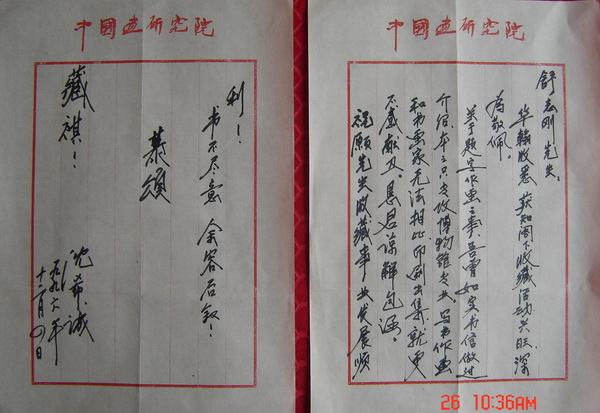 中國画研究院
舒志刚先生：
华翰收悉，获知阁下收藏活动兴旺，深
为敬佩。
关于题字作画之事，吾曾如实书信做过
介绍，本人只专攻博物馆专业。写书作画
和书画家无法相比，印刷出集，就更
不感献丑。恳君谅解、包涵。
祝愿先生收藏事业发展顺
中國画研究院
利！
书不尽意 余容后叙！
恭颂
藏祺！
沈希诚
一九九六年
十二月四日
26 10:36AM